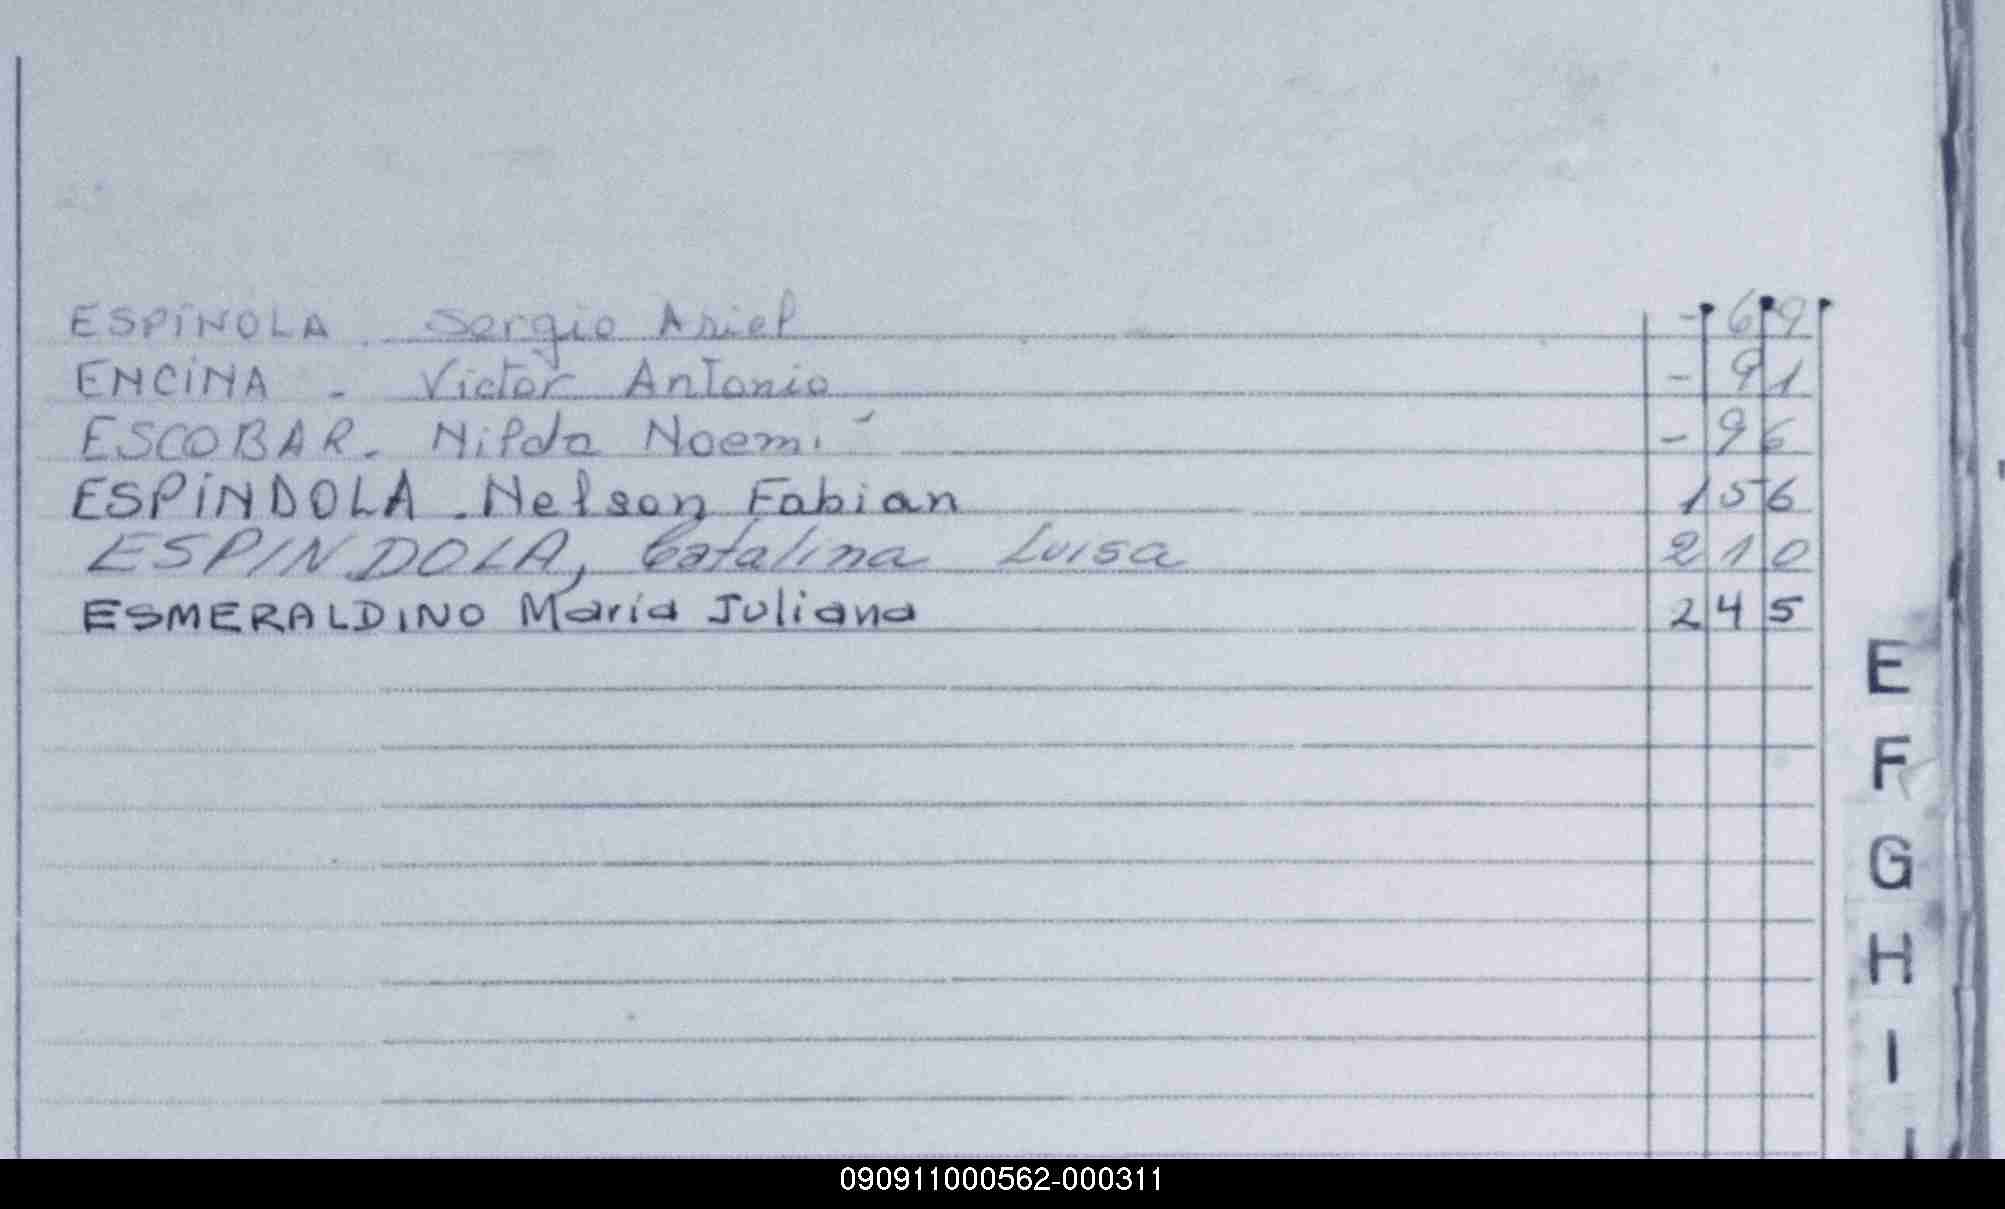 ESPÍNOLA. Sergio Ariel - 69
ENCINA - Victor Antonio - 91
ESCOBAR. Nilda Noemí - 96
ESPINDOLA. Nelson Fabian 156
ESPINDOLA, Catalina Luisa 210
ESMERALDINO María Juliana 245
E
F
G
H
I
090911000562-000311